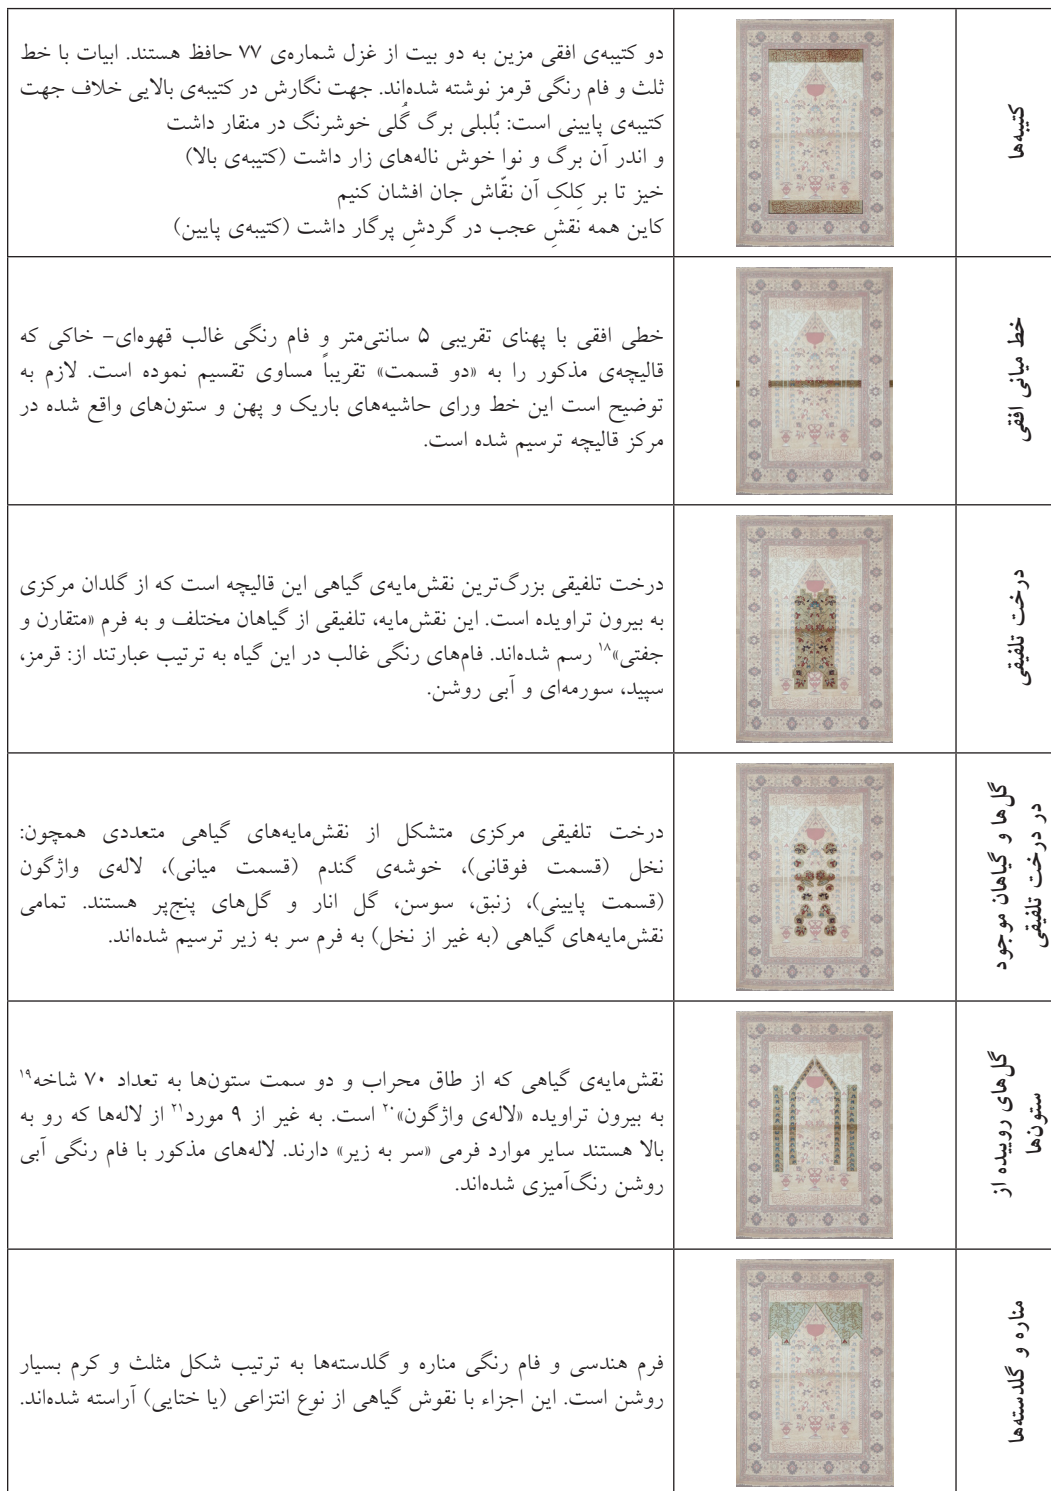 کتیبه‌ها
دو کتیبه‌ی افقی مزین به دو بیت از غزل شماره‌ی ۷۷ حافظ هستند. ابیات با خط
ثلث و فام رنگی قرمز نوشته شده‌اند. جهت نگارش در کتیبه‌ی بالایی خلاف جهت
کتیبه‌ی پایینی است: بُلبلی برگ گُلی خوشرنگ در منقار داشت
و اندر آن برگ و نوا خوش ناله‌های زار داشت (کتیبه‌ی بالا)
خیز تا بر کِلکِ آن نقّاش جان افشان کنیم
کاین همه نقشِ عجب در گردشِ پرگار داشت (کتیبه‌ی پایین)
خط میانی افقی
خطی افقی با پهنای تقریبی ۵ سانتی‌متر و فام رنگی غالب قهوه‌ای- خاکی که
قالیچه‌ی مذکور را به «دو قسمت» تقریباً مساوی تقسیم نموده است. لازم به
توضیح است این خط ورای حاشیه‌های باریک و پهن و ستون‌های واقع شده در
مرکز قالیچه ترسیم شده است.
درخت تلفیقی
درخت تلفیقی بزرگ‌ترین نقش‌مایه‌ی گیاهی این قالیچه است که از گلدان مرکزی
به بیرون تراویده است. این نقش‌مایه، تلفیقی از گیاهان مختلف و به فرم «متقارن و
جفتی»۱۸ رسم شده‌اند. فام‌های رنگی غالب در این گیاه به ترتیب عبارتند از: قرمز،
سپید، سورمه‌ای و آبی روشن.
گل‌ها و گیاهان موجود
در درخت تلفیقی
درخت تلفیقی مرکزی متشکل از نقش‌مایه‌های گیاهی متعددی همچون:
نخل (قسمت فوقانی)، خوشه‌ی گندم (قسمت میانی)، لاله‌ی واژگون
(قسمت پایینی)، زنبق، سوسن، گل انار و گل‌های پنج‌پر هستند. تمامی
نقش‌مایه‌های گیاهی (به غیر از نخل) به فرم سر به زیر ترسیم شده‌اند.
گل‌های روییده از
ستون‌ها
نقش‌مایه‌ی گیاهی که از طاق محراب و دو سمت ستون‌ها به تعداد ۷۰ شاخه۱۹
به بیرون تراویده «لاله‌ی واژگون»۲۰ است. به غیر از ۹ مورد۲۱ از لاله‌ها که رو به
بالا هستند سایر موارد فرمی «سر به زیر» دارند. لاله‌های مذکور با فام رنگی آبی
روشن رنگ‌آمیزی شده‌اند.
مناره و گلدسته‌ها
فرم هندسی و فام رنگی مناره و گلدسته‌ها به ترتیب شکل مثلث و کرم بسیار
روشن است. این اجزاء با نقوش گیاهی از نوع انتزاعی (یا ختایی) آراسته شده‌اند.